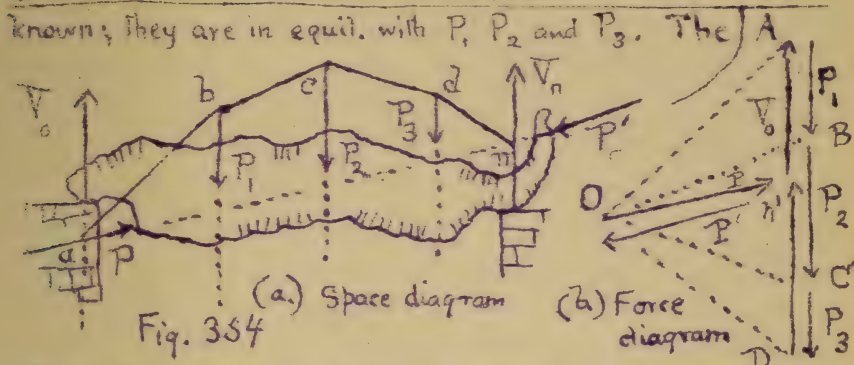 known; They are in equil. with P₁ P₂ and P₃. The
A
V₀
b
c
d
Vₙ
P₁
P₂
P₃
P'
n
a
P
(a.) Space diagram
Fig. 354
A
P₁
V₀
B
O
P
n'
P'
P₂
C
P₃
D
(b) Force
diagram